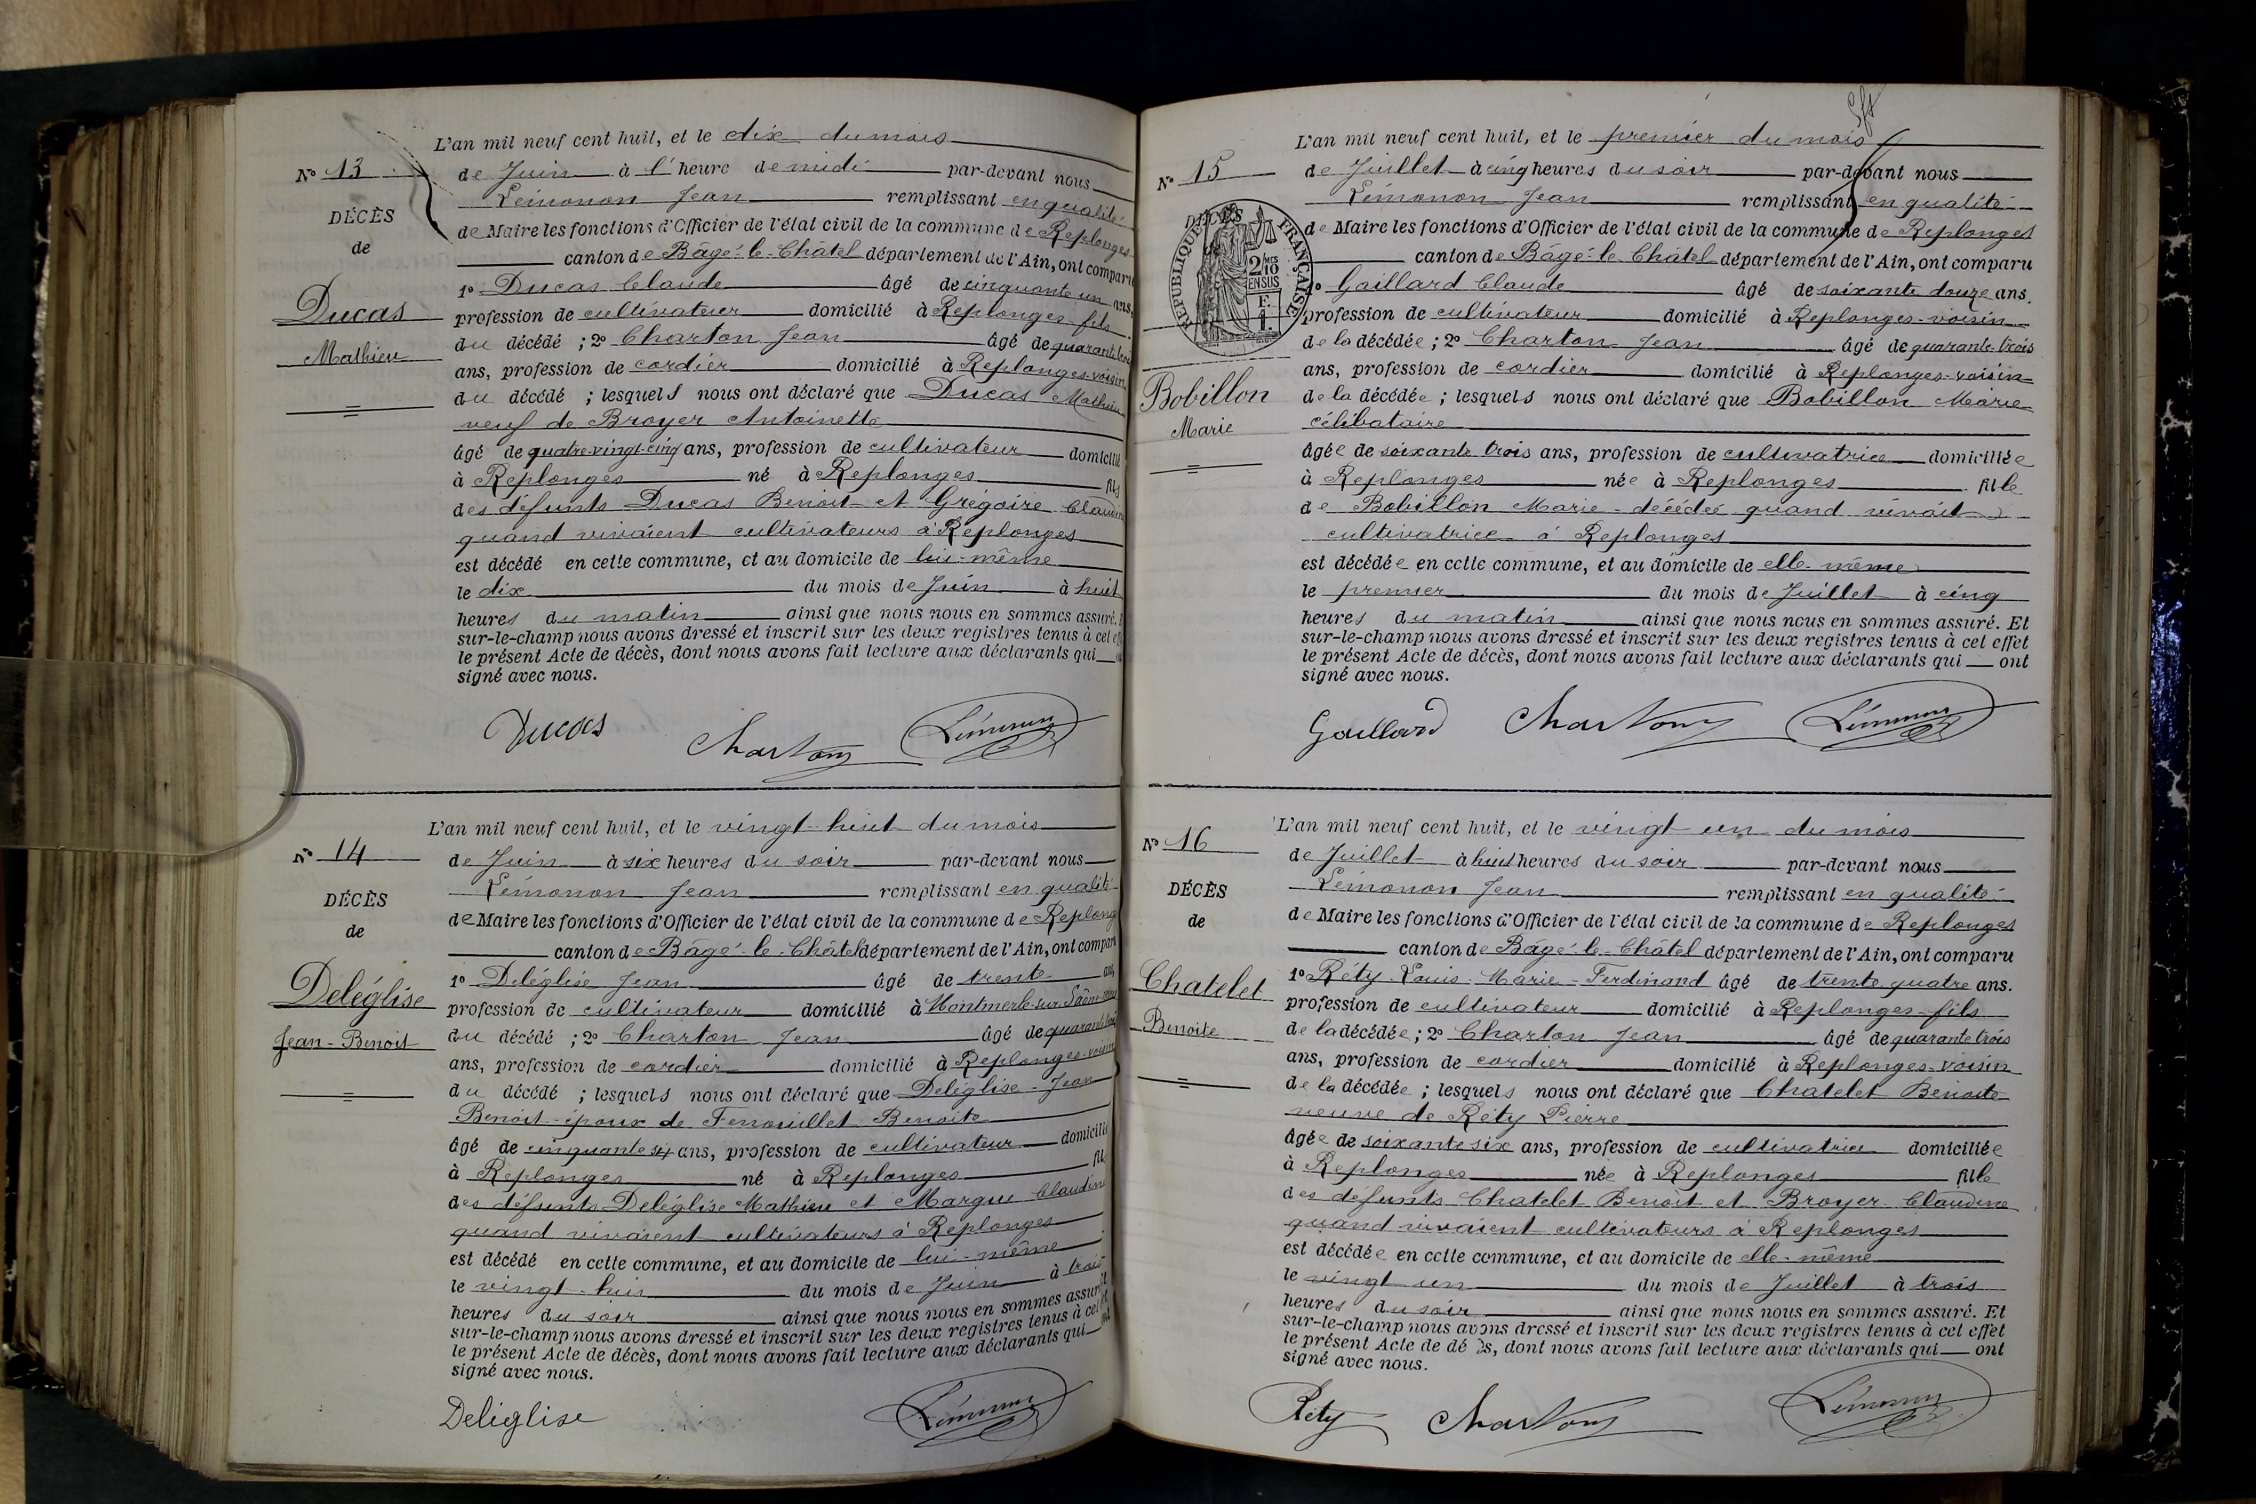 L'an mil neuf cent huit, et le dix du mois
N° 13
de Juin à l'heure de midi par-devant nous
Lémonon Jean remplissant en qualité
DÉCÈS
de Maire les fonctions d'Officier de l'état civil de la commune de Replonges
de
canton de Bâgé-le-Châtel département de l'Ain, ont comparu
1° Ducas Claude âgé de cinquante un ans,
Ducas
profession de cultivateur domicilié à Replonges fils
du décédé ; 2° Charton Jean âgé de quarante trois
Mathieu
ans, profession de cordier domicilié à Replonges-voisin
du décédé ; lesquels nous ont déclaré que Ducas Mathieu
veuf de Broyer Antoinette
âgé de quatre-vingt-cinq ans, profession de cultivateur domicilié
à Replonges né à Replonges fils
des défunts Ducas Benoit et Grégoire Claudine
quand vivaient cultivateurs à Replonges
est décédé en cette commune, et au domicile de lui-même
le dix du mois de Juin à huit
heures du matin ainsi que nous nous en sommes assuré. Et
sur-le-champ nous avons dressé et inscrit sur les deux registres tenus à cet effet
le présent Acte de décès, dont nous avons fait lecture aux déclarants qui
signé avec nous.
Ducas Charton Lémonon
L'an mil neuf cent huit, et le vingt-huit du mois
N° 14
de Juin à six heures du soir par-devant nous
Lémonon Jean remplissant en qualité
DÉCÈS
de Maire les fonctions d'Officier de l'état civil de la commune de Replong
de
canton de Bâgé-le-Châtel département de l'Ain, ont comparu
1° Deléglise Jean âgé de trente ans
Deléglise
profession de cultivateur domicilié à Montmerle-sur-Saône
du décédé ; 2° Charton Jean âgé de quarante trois
Jean-Benoit
ans, profession de cordier domicilié à Replonges-voisin
du décédé ; lesquels nous ont déclaré que Deléglise-Jean
Benoit époux de Fenouillet Benoite
âgé de cinquante six ans, profession de cultivateur domicilié
à Replonges né à Replonges fils
des défunts Deléglise Mathieu et Margue Claudine
quand vivaient cultivateurs à Replonges
est décédé en cette commune, et au domicile de lui-même
le vingt-huit du mois de Juin à trois
heures du soir ainsi que nous nous en sommes assuré
sur-le-champ nous avons dressé et inscrit sur les deux registres tenus à cet
le présent Acte de décès, dont nous avons fait lecture aux déclarants qui
signé avec nous.
Deléglise Lémonon
L'an mil neuf cent huit, et le premier du mois
N° 15
de Juillet à cinq heures du soir par-devant nous
Lémonon Jean remplissant en qualité
DÉCÈS
RÉPUBLIQUE FRANÇAISE
2/10 MES
EN SUS
F.
1.
de Maire les fonctions d'Officier de l'état civil de la commune de Replonges
canton de Bâgé-le-Châtel département de l'Ain, ont comparu
1° Gaillard Claude âgé de soixante douze ans.
profession de cultivateur domicilié à Replonges-voisin
de la décédée ; 2° Charton Jean âgé de quarante-trois
ans, profession de cordier domicilié à Replonges-voisin
Bobillon
de la décédée ; lesquels nous ont déclaré que Bobillon Marie
Marie
célibataire
âgée de soixante trois ans, profession de cultivatrice domiciliée
à Replonges née à Replonges fille
de Bobillon Marie-décédée quand vivait
cultivatrice à Replonges
est décédée en cette commune, et au domicile de elle-même
le premier du mois de Juillet à cinq
heures du matin ainsi que nous nous en sommes assuré. Et
sur-le-champ nous avons dressé et inscrit sur les deux registres tenus à cet effet
le présent Acte de décès, dont nous avons fait lecture aux déclarants qui ont
signé avec nous.
Gaillard Charton Lémonon
L'an mil neuf cent huit, et le vingt-un du mois
N° 16
de Juillet à huit heures du soir par-devant nous
Lémonon Jean remplissant en qualité
DÉCÈS
de Maire les fonctions d'Officier de l'état civil de la commune de Replonges
de
canton de Bâgé-le-Châtel département de l'Ain, ont comparu
1° Réty Louis-Marie-Ferdinand âgé de trente quatre ans.
Chatelet
profession de cultivateur domicilié à Replonges-fils
Benoite
de la décédée ; 2° Charton Jean âgé de quarante trois
ans, profession de cordier domicilié à Replonges-voisin
de la décédée ; lesquels nous ont déclaré que Chatelet Benoite
veuve de Réty Pierre
âgée de soixante six ans, profession de cultivatrice domiciliée
à Replonges née à Replonges fille
des défunts Chatelet Benoit et Broyer Claudine
quand vivaient cultivateurs à Replonges
est décédée en cette commune, et au domicile de elle-même
le vingt un du mois de Juillet à trois
heures du soir ainsi que nous nous en sommes assuré. Et
sur-le-champ nous avons dressé et inscrit sur les deux registres tenus à cet effet
le présent Acte de décès, dont nous avons fait lecture aux déclarants qui ont
signé avec nous.
Réty Charton Lémonon